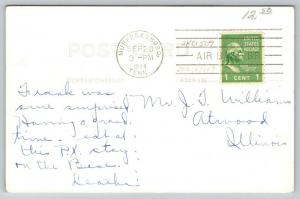 12.50
POSTCARD
MURFREESBORO
SEP 20
3-PM
1944
TENN.
AIR
UNITED STATES POSTAGE
1 CENT 1
Frank was
sure surprised.
Having a grand
time - eat at
this P.X. stay
on the Base.
Mr. J. T. Williams
Atwood
Illinois